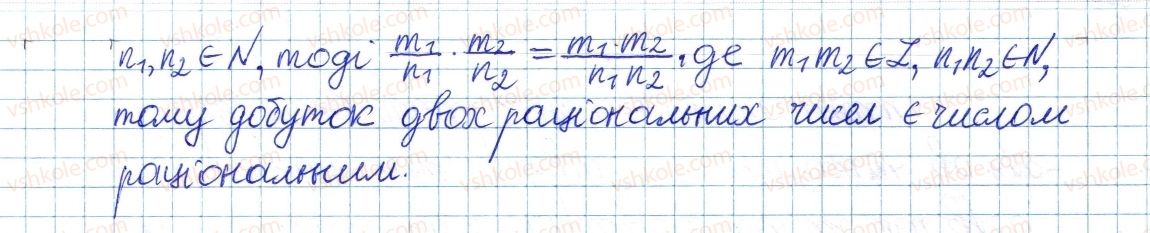 n₁, n₂ ∈ N, тоді m₁/n₁ · m₂/n₂ = m₁·m₂/n₁n₂, де m₁m₂ ∈ Z, n₁n₂ ∈ N,
тому добуток двох раціональних чисел є числом
раціональним.